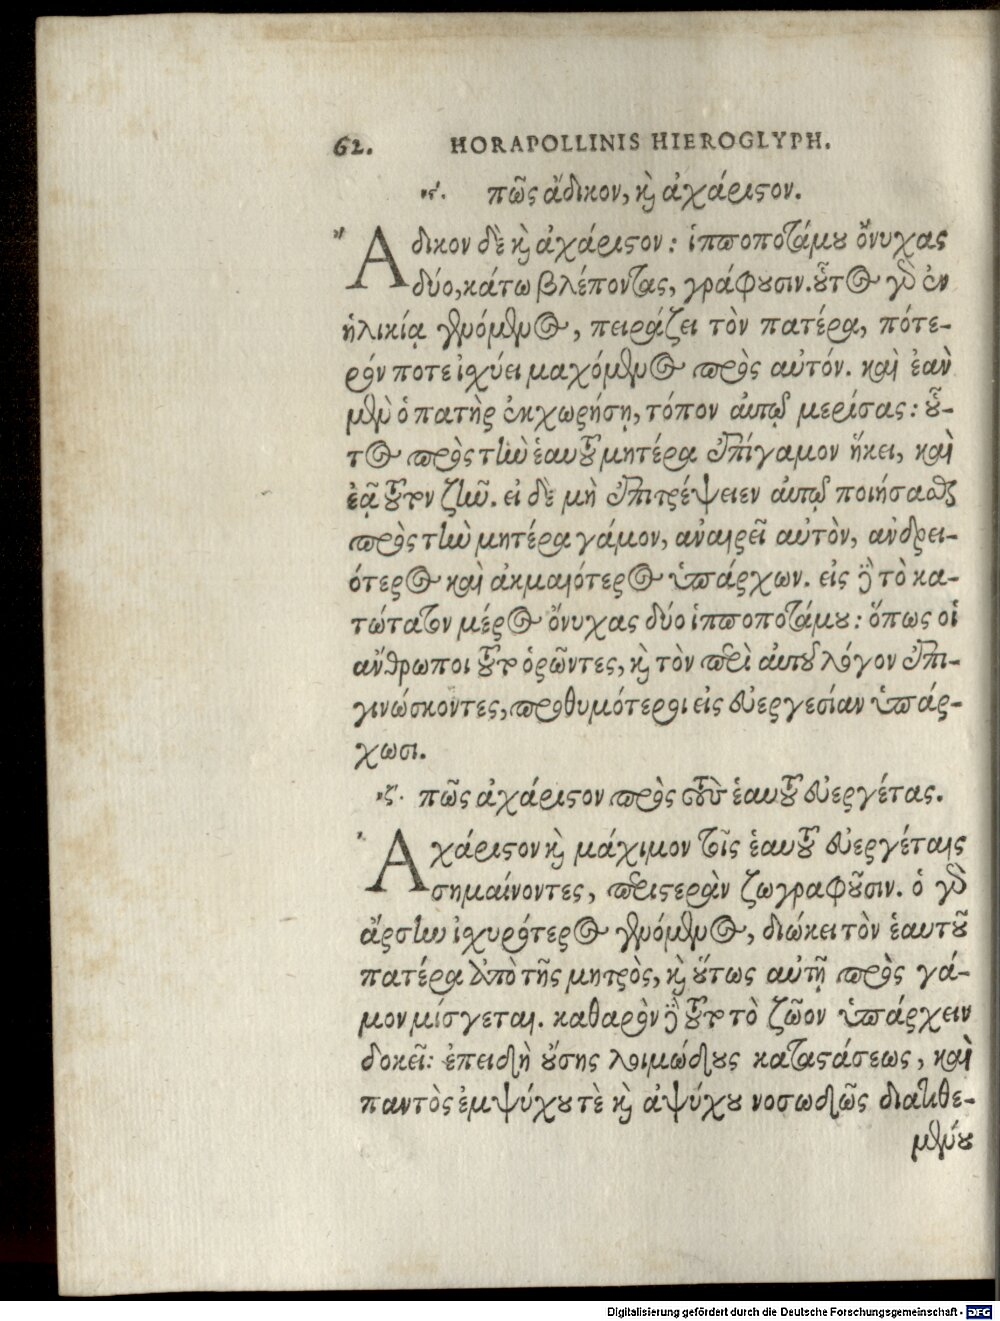 62. HORAPOLLINIS HIEROGLYPH.
νϛ΄. πῶς ἄδικον, καὶ ἀχάριστον.
Ἄδικον δὲ καὶ ἀχάριστον: ἱπποποτάμου ὄνυχας
δύο, κάτω βλέποντας, γράφουσιν. οὗτος γὰρ ἐν
ἡλικίᾳ γενόμενος, πειράζει τὸν πατέρα, πότε-
ρόν ποτε ἰσχύει μαχόμενος πρὸς αὐτόν. καὶ ἐὰν
μὲν ὁ πατὴρ ἐκχωρήσῃ, τόπον αὐτῷ μερίσας: οὗ-
τος πρὸς τὴν ἑαυτοῦ μητέρα ἐπίγαμον ἥκει, καὶ
ἐᾷ τοῦτον ζῆν. εἰ δὲ μὴ ἐπιτρέψειεν αὐτῷ ποιήσασθαι
πρὸς τὴν μητέρα γάμον, ἀναιρεῖ αὐτὸν, ἀνδρει-
ότερος καὶ ἀκμαιότερος ὑπάρχων. εἰς δὲ τὸ κα-
τώτατον μέρος ὄνυχας δύο ἱπποποτάμου: ὅπως οἱ
ἄνθρωποι τοῦτο ὁρῶντες, καὶ τὸν περὶ αὐτοῦ λόγον ἐπι-
γινώσκοντες, προθυμότεροι εἰς εὐεργεσίαν ὑπάρ-
χωσι.
νζ΄. πῶς ἀχάριστον πρὸς τοὺς ἑαυτοῦ εὐεργέτας.
Ἀχάριστον καὶ μάχιμον τοῖς ἑαυτοῦ εὐεργέταις
σημαίνοντες, περιστερὰν ζωγραφοῦσιν. ὁ γὰρ
ἄρσην ἰσχυρότερος γενόμενος, διώκει τὸν ἑαυτοῦ
πατέρα ἀπὸ τῆς μητρὸς, καὶ οὕτως αὐτῇ πρὸς γά-
μον μίσγεται. καθαρὸν δὲ τοῦτο τὸ ζῶον ὑπάρχειν
δοκεῖ: ἐπειδὴ οὔσης λοιμώδους καταστάσεως, καὶ
παντὸς ἐμψύχου τὲ καὶ ἀψύχου νοσωδῶς διατιθε-
μένου
Digitalisierung gefördert durch die Deutsche Forschungsgemeinschaft - DFG